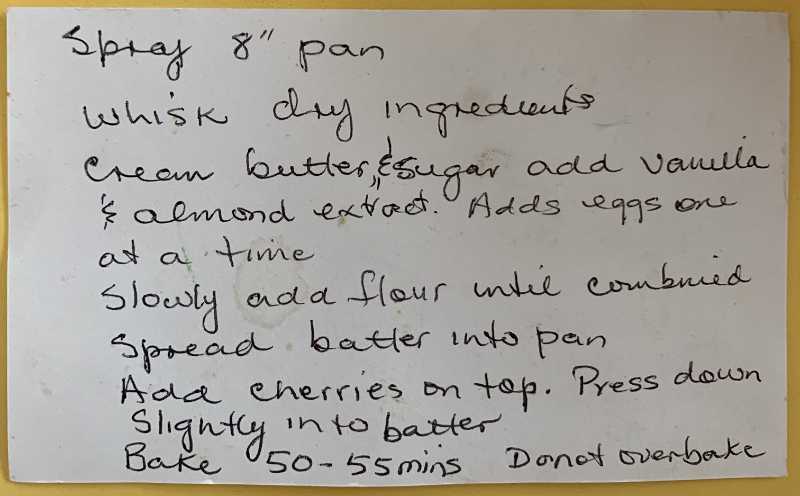 Spray 8" pan
Whisk dry ingredients
Cream butter, & sugar add vanilla
& almond extract. Adds eggs one
at a time
Slowly add flour until combined
Spread batter into pan
Add cherries on top. Press down
Slightly into batter
Bake 50-55mins Donot overbake